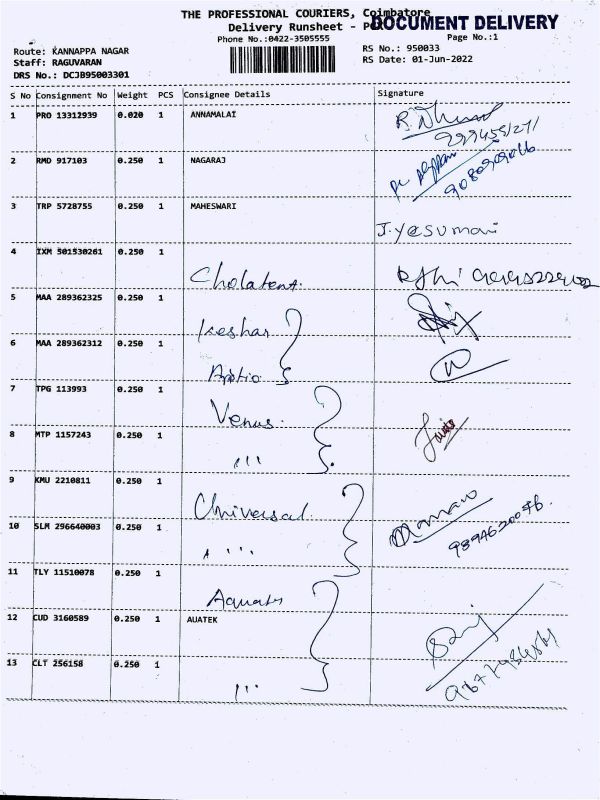 THE PROFESSIONAL COURIERS, Coimbatore
DOCUMENT DELIVERY
Delivery Runsheet -
Phone No.:0422-3505555
Page No.:1
Route: KANNAPPA NAGAR
RS No.: 950033
Staff: RAGUVARAN
RS Date: 01-Jun-2022
DRS No.: DCJB95003301
S No Consignment No Weight PCS Consignee Details Signature
1 PRO 13312939 0.020 1 ANNAMALAI
2 RMD 917103 0.250 1 NAGARAJ
9080909066
3 TRP 5728755 0.250 1 MAHESWARI
J.yesumari
4 IXM 501530261 0.250 1
5 MAA 289362325 0.250 1
Keshar
6 MAA 289362312 0.250 1
7 TPG 113993 0.250 1
Venus.
8 MTP 1157243 0.250 1
,,,
9 KMU 2210811 0.250 1
Universal
10 SLM 296640003 0.250 1
9894620046.
11 TLY 11510078 0.250 1
12 CUD 3160589 0.250 1 AUATEK
13 CLT 256158 0.250 1
,,,